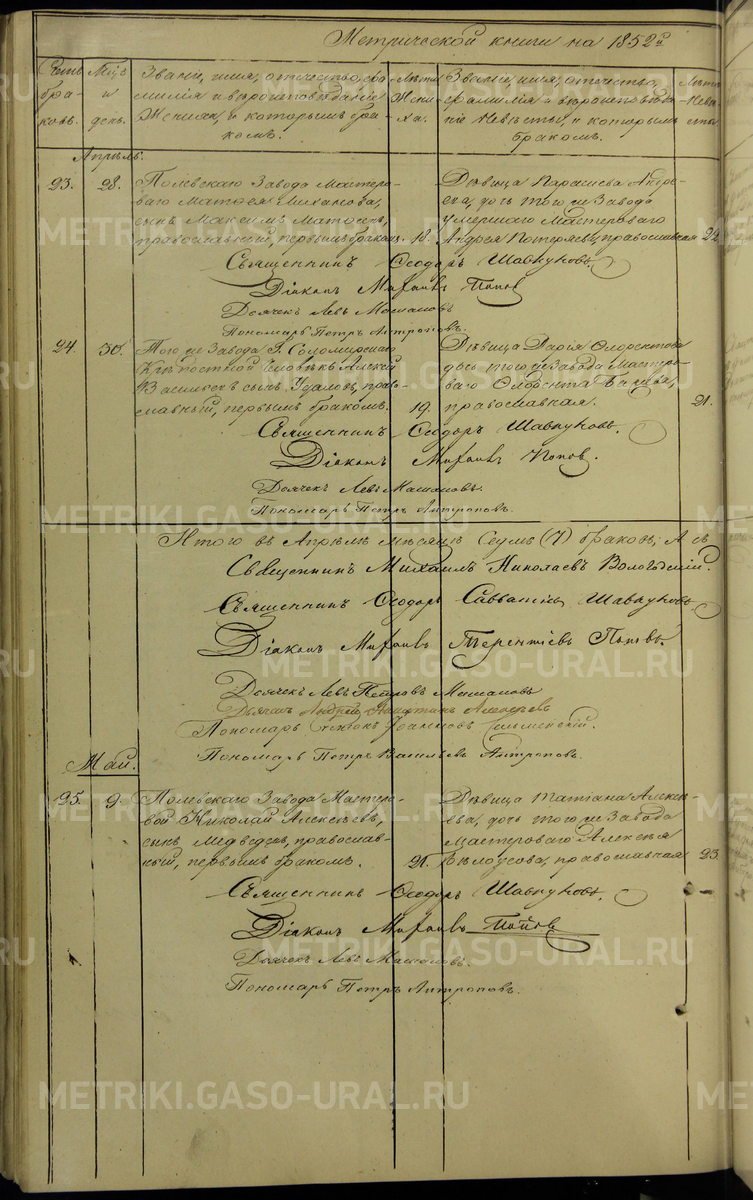 Метрической книги на 1852й
Счетъ браковъ.
Мѣс. и день.
Званіе, имя, отчество, фа-
милія и вѣроисповѣданіе
Жениха, и которымъ бра-
комъ.
Лѣта Жени-
ха.
Званіе, имя, отчество,
фамилія и вѣроисповѣда-
ніе Невѣсты, и которымъ
бракомъ.
Лѣта Невѣ-
сты.
Апрѣль.
23. 28. Полевскаго Завода Мастеро-
ваго Матѳея
сынъ Максимъ Матѳеевъ,
православный, первымъ бракомъ. 18.
Дѣвица Парасковья Андре-
ева, дочь того же Завода
умершаго Мастероваго
Андрея Потеряева, православная 22
Священникъ Ѳеодоръ Шавкуновъ.
Діаконъ Попов
Дьячекъ Левъ
Пономарь Петръ Антроповъ.
24. 30. Того же Завода Г. Соломирскаго
Крѣпостной Человѣкъ Алексѣй
Васильевъ сынъ Удаловъ, прав-
славный, первымъ бракомъ. 19.
Дѣвица Дарія
дочь того же Завода Мастеро-
ваго
православная. 21.
Священникъ Ѳеодоръ Шавкуновъ.
Діаконъ Попов.
Дьячекъ Левъ
Пономарь Петръ Антроповъ.
Итого въ Апрѣлѣ мѣсяцѣ Семь (7) браковъ; А съ
Священникъ Михаилъ Николаевъ Вологодскій.
Священникъ Ѳеодоръ Савватіевъ Шавкуновъ
Діаконъ Терентіевъ Поповъ.
Дьячекъ Левъ Петровъ
Дьячекъ Андрей
Пономарь Іоанновъ
Пономарь Петръ Васильевъ Антроповъ.
Май.
25. 9. Полевскаго Завода Мастеро-
вой Николай Алексѣевъ
сынъ Медведевъ, православ-
ный, первымъ бракомъ. 21.
Дѣвица Татіана Алексѣ-
ева, дочь того же Завода
Мастероваго Алексѣя
Бѣлоусова, православная 23.
Священникъ Ѳеодоръ Шавкуновъ.
Діаконъ Попов
Дьячекъ Левъ
Пономарь Петръ Антроповъ.
METRIKI.GASO-URAL.RU